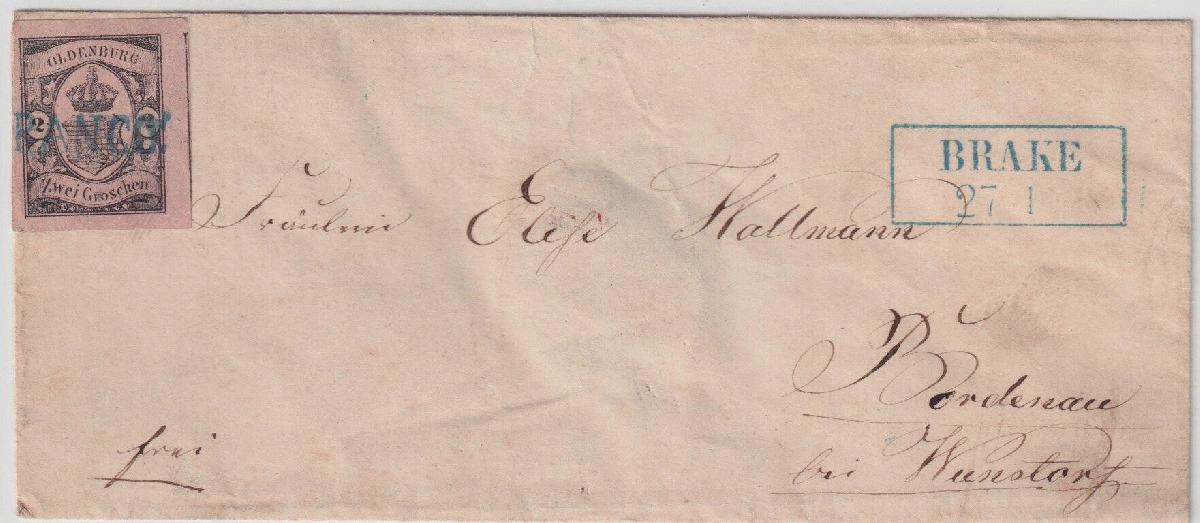 OLDENBURG
2 2
Zwei Groschen
FRANCO
BRAKE
27 1
Fräulein Elise Hallmann
Bordenau
bei Wunstorf
frei